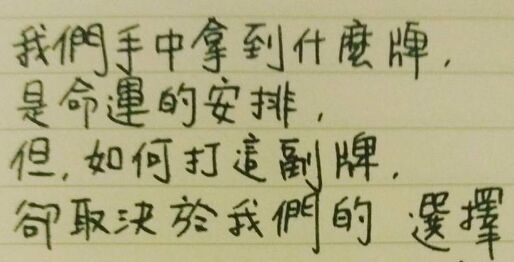 我們手中拿到什麼牌，
是命運的安排，
但，如何打這副牌，
卻取決於我們的 選擇